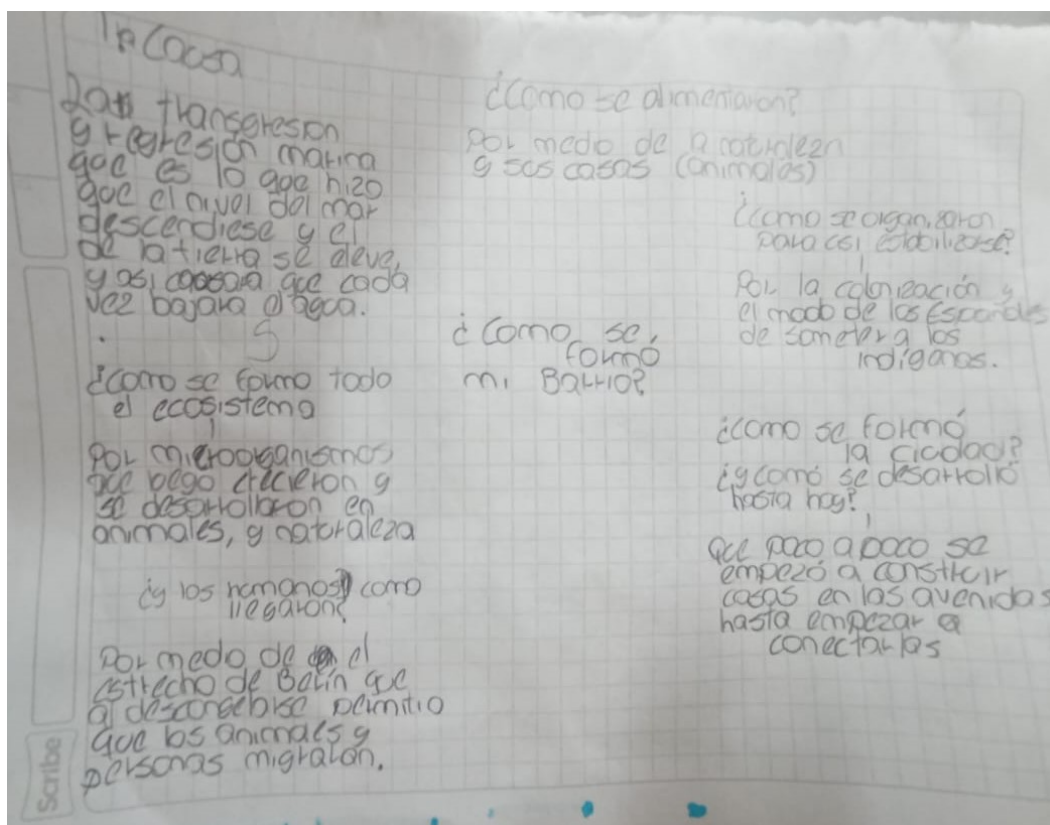 la Causa
Las transgresion
y regresión marina
que es lo que hizo
que el nivel del mar
descendiese y el
de la tierra se eleve,
y asi causara que cada
vez bajara el agua.
¿Como se formo todo
el ecosistema
Por microorganismos
que luego crecieron y
se desarrollaron en
animales, y naturaleza
¿y los humanos como
llegaron?
Por medo de el
estrecho de Berin que
al descongelarse permitio
que los animales y
personas migraran.
¿Como se alimentaron?
Por medio de la naturaleza
y sus casas (animales)
¿Como se
formo
mi Barrio?
¿Como se organizaron
para asi establizarse?
Por la colonización y
el modo de los Españoles
de someter a los
indiganas.
¿Como se formó
la Ciudad?
¿y comó se desarrolló
hasta hoy?
Que poco a poco se
empezó a construir
casas en las avenidas
hasta empezar a
conectarlas
Scribe